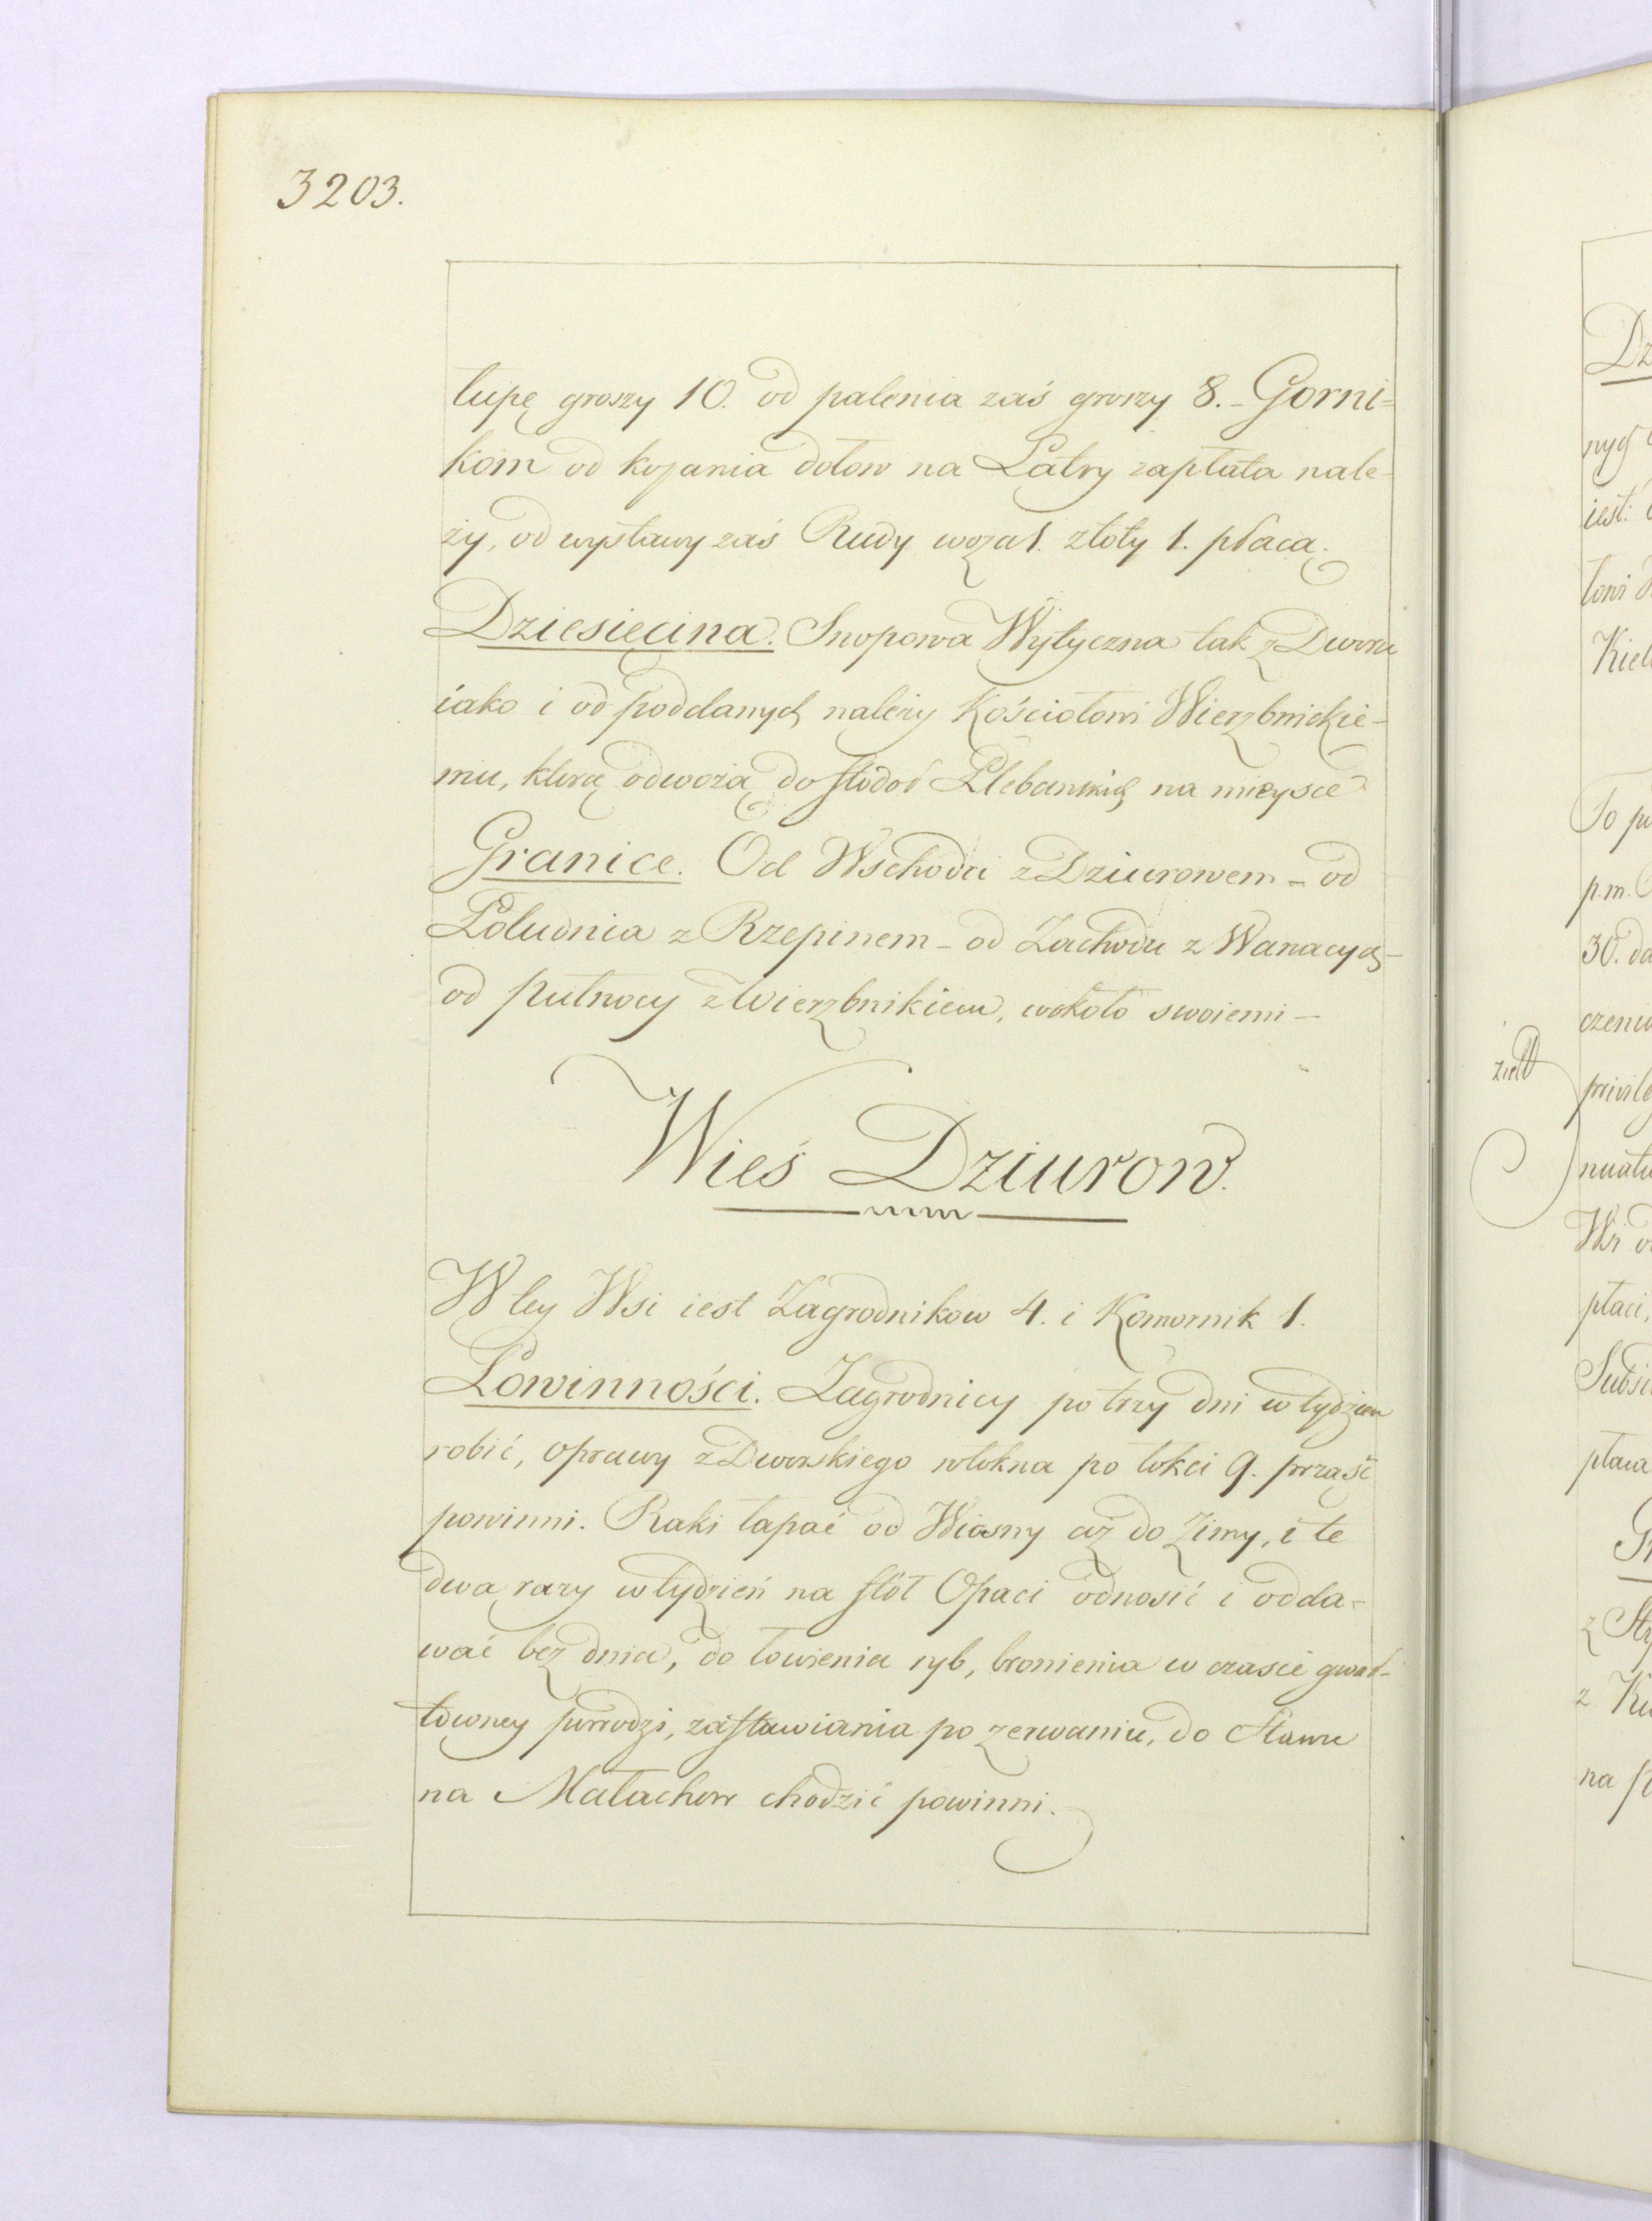 3203.
kupę groszy 10. od palenia zaś groszy 8. - Gorni=
kom od kopania dołow na Latry zapłata nale-
ży, od wystawy zaś Rudy woza 1. złoty 1. płacą.
Dziesięcina. Snopowa Wytyczna tak z Dworu
iako i od poddanych należy Kościołowi Wierzbnickie-
mu, którą odwożą do stodoł Plebanskich na mieysce
Granice. Od Wschodu z Dziurowem - od
Południa z Rzepinem - od Zachodu z Wanacyą -
od Pułnocy z Wierzbnikiem, wokoło swoiemi -
Wieś Dziurow.
W tey Wsi iest Zagrodnikow 4. i Komornik 1.
Powinności. Zagrodnicy po trzy dni w tydzien
robić, oprawy z Dworskiego włokna po łokci 9. prząść
powinni. Raki łapać od Wiosny aż do Zimy, i te
dwa razy w tydzień na stół Opaci odnosić i odda-
wać bez dnia, do łowienia ryb, bronienia w czasie gwał-
towney powodzi, zastawiania po zerwaniu, do Stawu
na Małachow chodzić powinni.